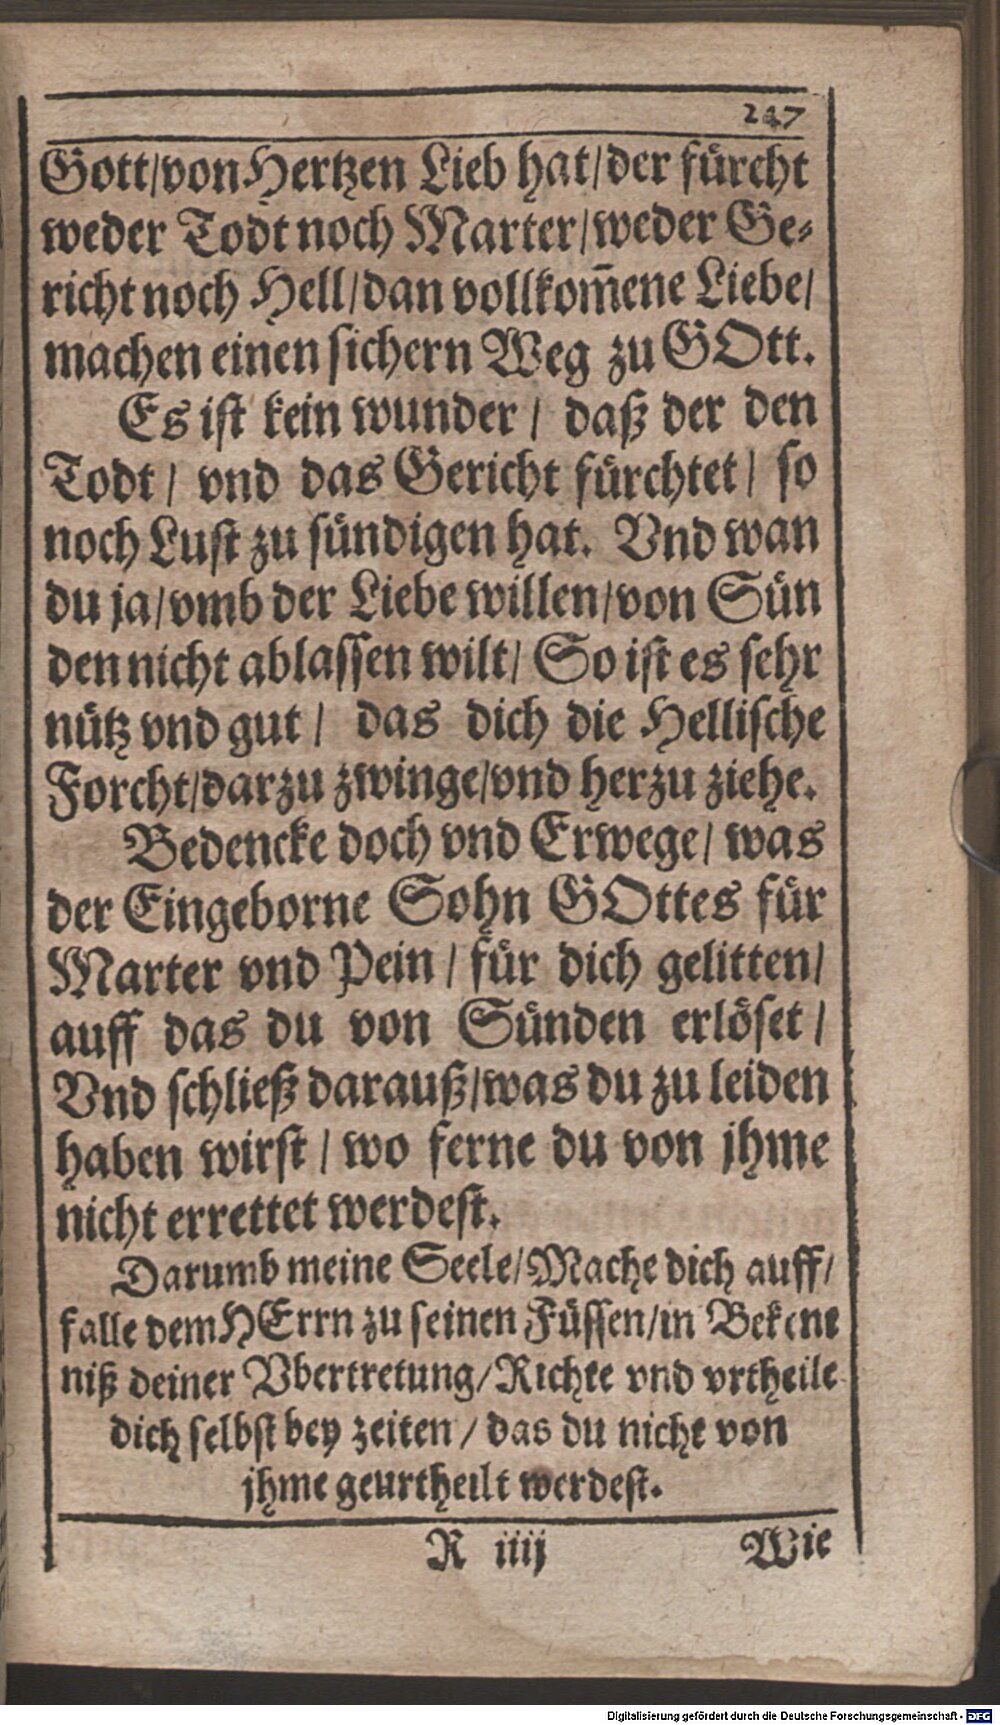 247
Gott/von Hertzen Lieb hat/der fürcht
weder Todt noch Marter/weder Ge-
richt noch Hell/dan vollkom̃ene Liebe/
machen einen sichern Weg zu GOtt.
Es ist kein wunder/ daß der den
Todt/ vnd das Gericht fürchtet/ so
noch Lust zu sündigen hat. Vnd wan
du ja/vmb der Liebe willen/von Sün
den nicht ablassen wilt/ So ist es sehr
nütz vnd gut/ das dich die Hellische
Forcht/darzu zwinge/vnd herzu ziehe.
Bedencke doch vnd Erwege/ was
der Eingeborne Sohn GOttes für
Marter vnd Pein/ für dich gelitten/
auff das du von Sünden erlöset/
Vnd schließ darauß/was du zu leiden
haben wirst/ wo ferne du von jhme
nicht errettet werdest.
Darumb meine Seele/Mache dich auff/
falle dem HErrn zu seinen Füssen/in Bekent
niß deiner Vbertretung/Richte vnd vrtheile
dich selbst bey zeiten/ das du nicht von
jhme geurtheilt werdest.
R iiij Wie
Digitalisierung gefördert durch die Deutsche Forschungsgemeinschaft - DFG